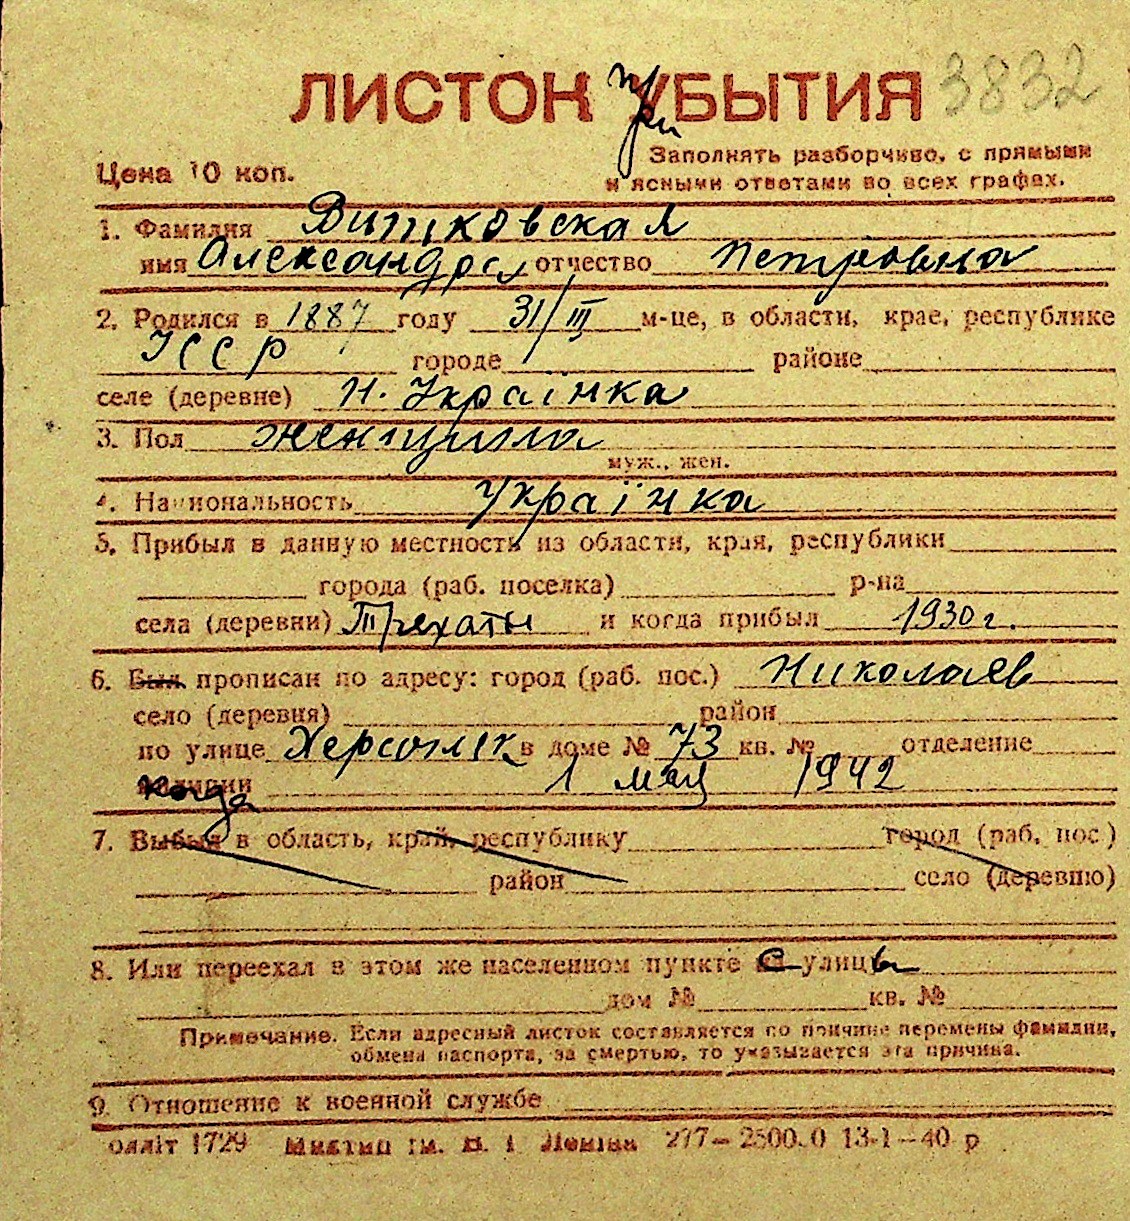 ЛИСТОК УБЫТИЯ 3832
при
Цена 10 коп.
Заполнять разборчиво, с прямыми
и ясными ответами во всех графах.
1. Фамилия Витковская
имя Александра отчество Петровна
2. Родился в 1887 году 31/III м-це, в области, крае, республике
УССР городе районе
селе (деревне) Н. Українка
3. Пол женщина
муж., жен.
4. Национальность Українка
5. Прибыл в данную местность из области, края, республики
города (раб. поселка) р-на
села (деревни) Трехаты и когда прибыл 1930 г.
6. Был прописан по адресу: город (раб. пос.) Николаев
село (деревня) район
по улице Херсонск в доме № 73 кв. № отделение
когда 1 мая 1942
7. Выбыл в область, край, республику город (раб. пос.)
район село (деревню)
8. Или переехал в этом же населенном пункте с улицы
дом № кв. №
Примечание. Если адресный листок составляется по причине перемены фамилии,
обмена паспорта, за смертью, то указывается эта причина.
9. Отношение к военной службе
олліт 1729 ім. В. І. Леніна 277–2500.0 13-1–40 р